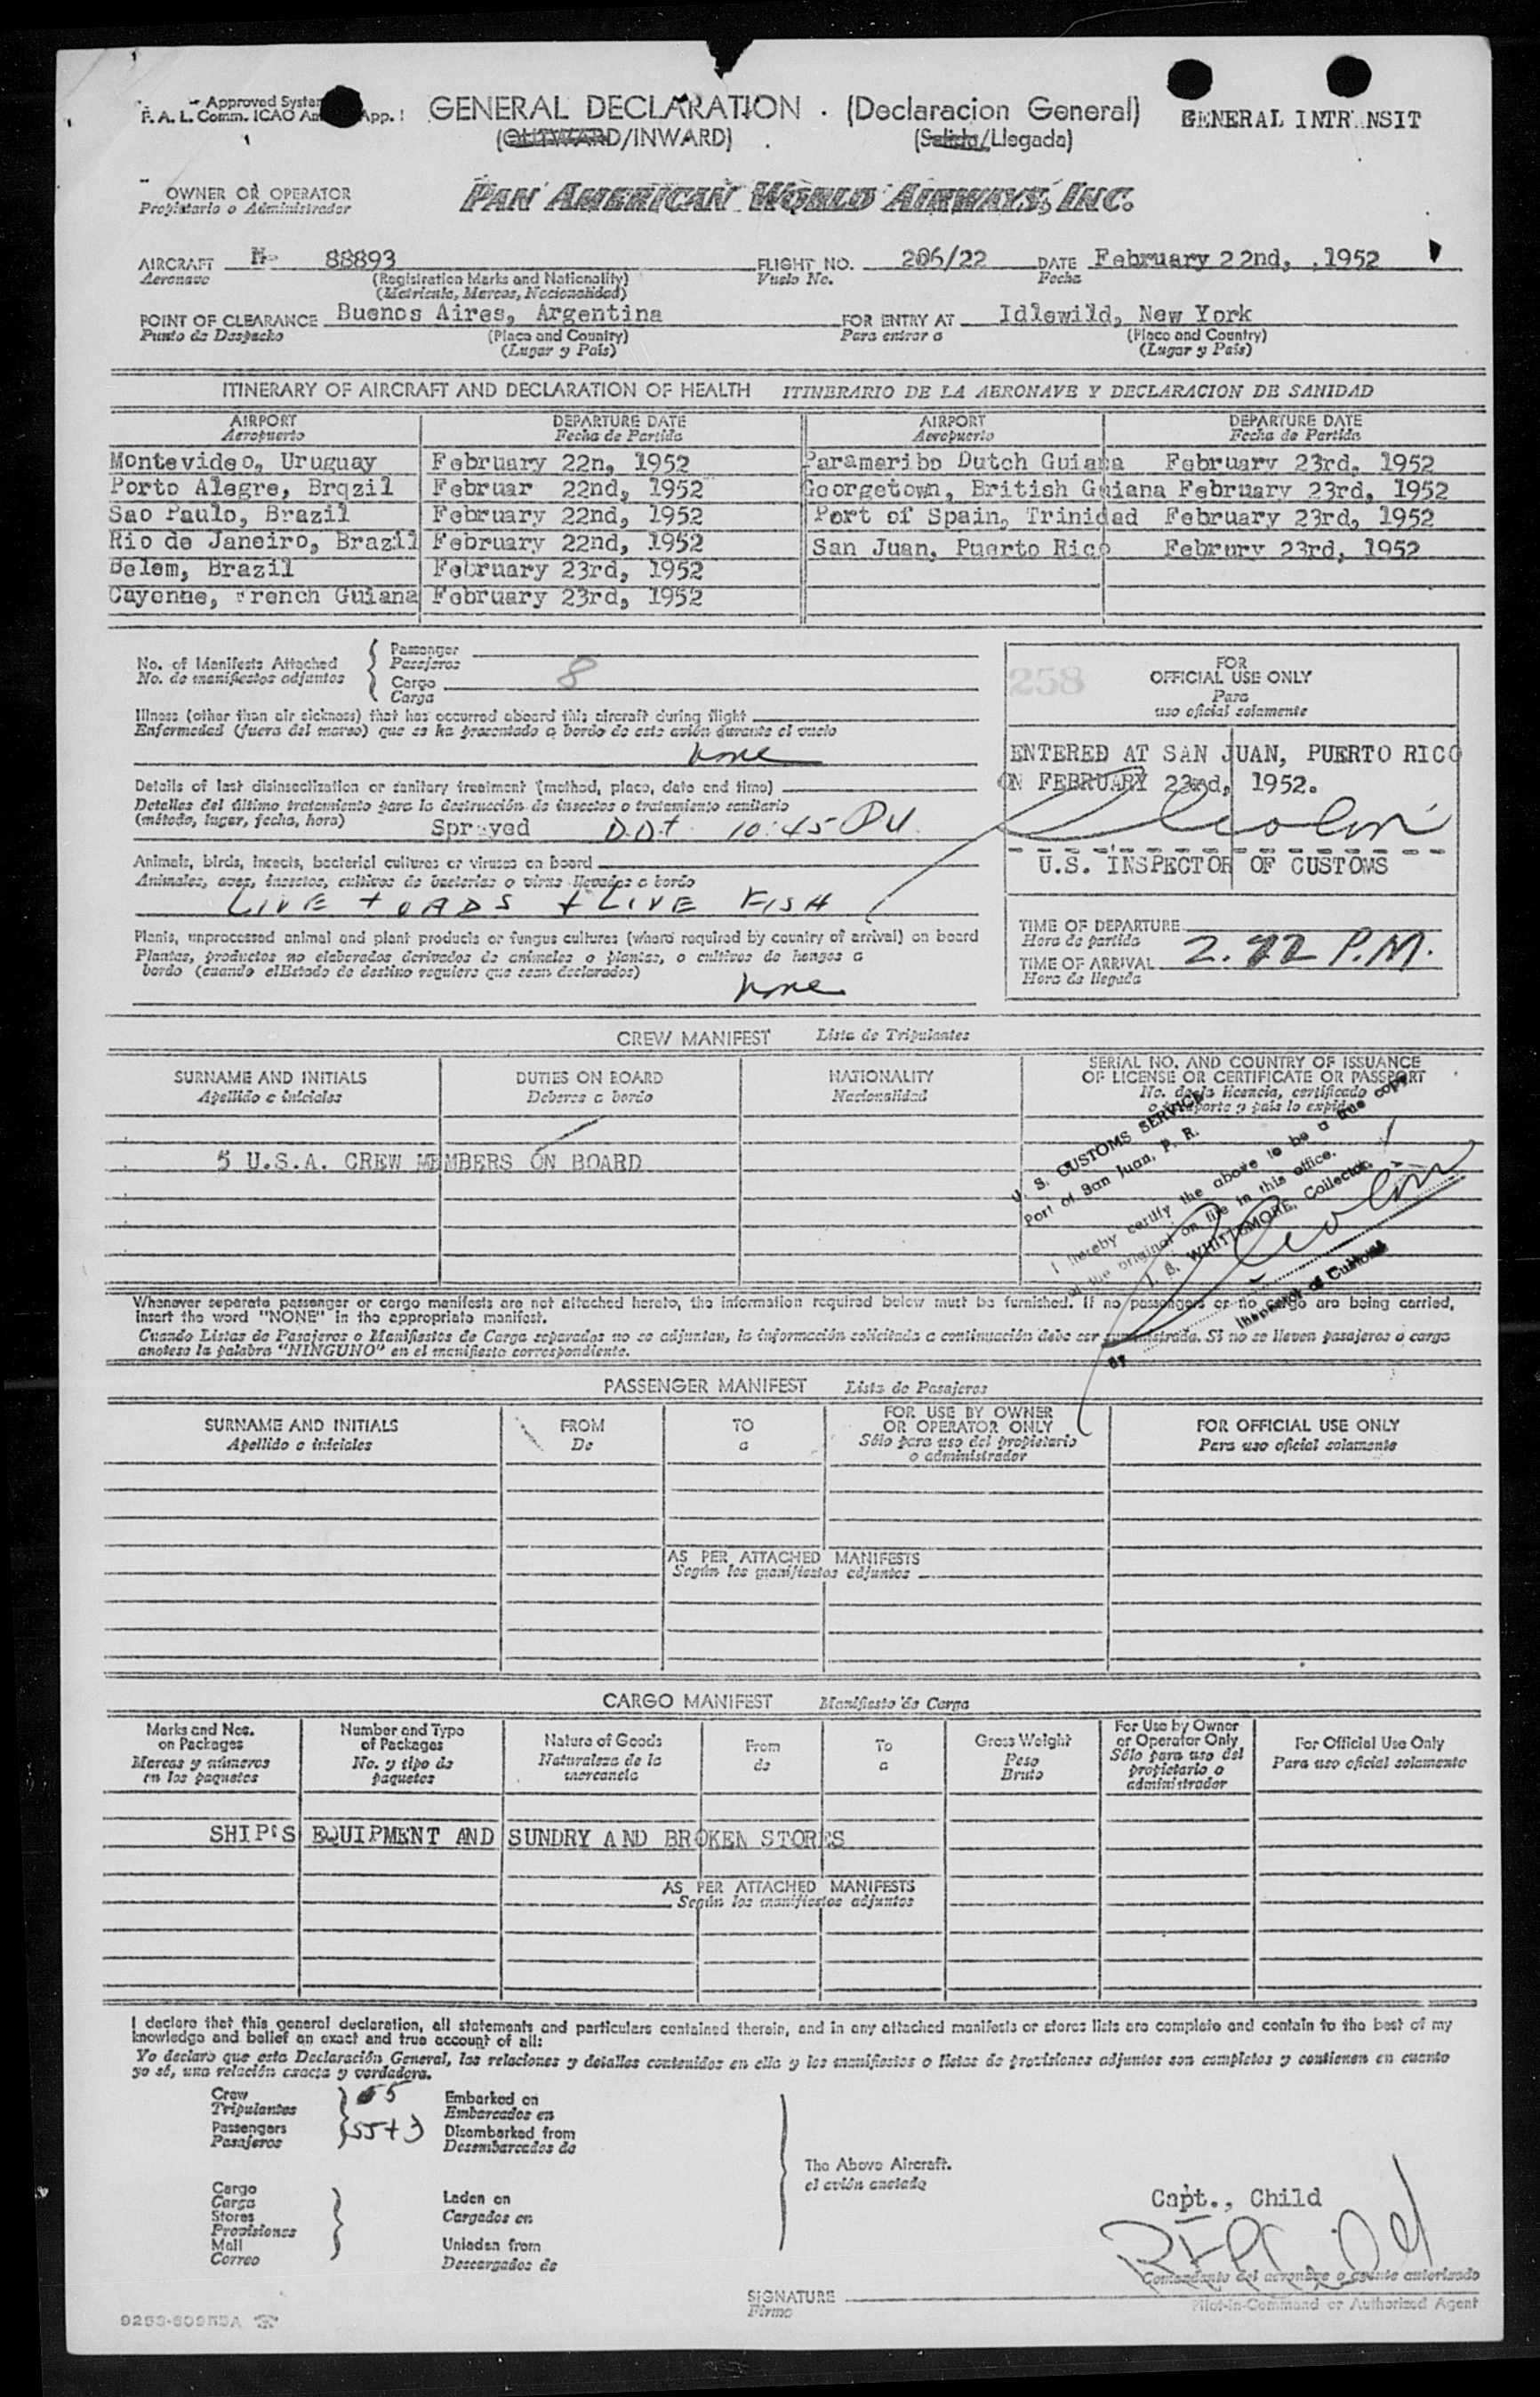 Approved System
F. A. L. Comm. ICAO App.
GENERAL DECLARATION . (Declaracion General)
(OUTWARD/INWARD) (Salida/Llegada)
GENERAL INTR NSIT
OWNER OR OPERATOR
Propietario o Administrador
PAN AMERICAN WORLD AIRWAYS, INC.
AIRCRAFT N- 88893 FLIGHT NO. 206/22 DATE February 22nd, ,1952
Aeronave (Registration Marks and Nationality) Vuelo No. Fecha
(Matricula, Marcas, Nacionalidad)
POINT OF CLEARANCE Buenos Aires, Argentina FOR ENTRY AT Idlewild, New York
Punto de Despacho (Place and Country) Para entrar a (Place and Country)
(Lugar y País) (Lugar y País)
ITINERARY OF AIRCRAFT AND DECLARATION OF HEALTH ITINERARIO DE LA AERONAVE Y DECLARACION DE SANIDAD
AIRPORT DEPARTURE DATE AIRPORT DEPARTURE DATE
Aeropuerto Fecha de Partida Aeropuerto Fecha de Partida
Montevideo, Uruguay February 22n, 1952 Paramaribo Dutch Guiana February 23rd, 1952
Porto Alegre, Brqzil Februar 22nd, 1952 Georgetown, British Guiana February 23rd, 1952
Sao Paulo, Brazil February 22nd, 1952 Port of Spain, Trinidad February 23rd, 1952
Rio de Janeiro, Brazil February 22nd, 1952 San Juan, Puerto Rico Februry 23rd, 1952
Belem, Brazil February 23rd, 1952
Cayenne, French Guiana February 23rd, 1952
No. of Manifests Attached
No. de manifiestos adjuntos
Passenger
Pasajeros
Cargo 8
Carga
Illness (other than air sickness) that has occurred aboard this aircraft during flight
Enfermedad (fuera del mareo) que se ha presentado a bordo de este avión durante el vuelo
None
Details of last disinsectization or sanitary treatment (method, place, date and time)
Detalles del último tratamiento para la destrucción de insectos o tratamiento sanitario
(método, lugar, fecha, hora)
Spr yed D.D.t 10:45
Animals, birds, insects, bacterial cultures or viruses on board
Animales, aves, insectos, cultivos de bacterias o virus llevados a bordo
LIVE TOADS + LIVE FISH
Plants, unprocessed animal and plant products or fungus cultures (where required by country of arrival) on board
Plantas, productos no elaborados derivados de animales o plantas, o cultivos de hongos a
bordo (cuando elEstado de destino requiera que sean declarados)
None
258
FOR
OFFICIAL USE ONLY
Para
uso oficial solamente
ENTERED AT SAN JUAN, PUERTO RICO
ON FEBRUARY 23rd, 1952.
U.S. INSPECTOR OF CUSTOMS
TIME OF DEPARTURE
Hora de partida
TIME OF ARRIVAL 2.22 P.M.
Hora de llegada
CREW MANIFEST Lista de Tripulantes
SURNAME AND INITIALS DUTIES ON BOARD NATIONALITY SERIAL NO. AND COUNTRY OF ISSUANCE
OF LICENSE OR CERTIFICATE OR PASSPORT
Apellido e iniciales Deberes a bordo Nacionalidad No. de la licencia, certificado
o pasaporte y país lo expide
5 U.S.A. CREW MEMBERS ON BOARD
U. S. CUSTOMS SERVICE
Port of San Juan, P. R.
I hereby certify the above to be a true copy
of the original on file in this office.
WHITTEMORE, Collector.
By
Inspector of Customs
Whenever separate passenger or cargo manifests are not attached hereto, the information required below must be furnished. If no passengers or no cargo are being carried,
insert the word "NONE" in the appropriate manifest.
Cuando Listas de Pasajeros o Manifiestos de Carga separados no se adjuntan, la información solicitada a continuación debe ser suministrada. Si no se lleven pasajeros o carga
anotese la palabra "NINGUNO" en el manifiesto correspondiente.
PASSENGER MANIFEST Lista de Pasajeros
SURNAME AND INITIALS FROM TO FOR USE BY OWNER
OR OPERATOR ONLY FOR OFFICIAL USE ONLY
Apellido e iniciales De a Sólo para uso del propietario
o administrador Para uso oficial solamente
AS PER ATTACHED MANIFESTS
Según los manifiestos adjuntos
CARGO MANIFEST Manifiesto de Carga
Marks and Nos.
on Packages
Marcas y números
en los paquetes
Number and Type
of Packages
No. y tipo de
paquetes
Nature of Goods
Naturaleza de la
mercancia
From
de
To
a
Gross Weight
Peso
Bruto
For Use by Owner
or Operator Only
Sólo para uso del
propietario o
administrador
For Official Use Only
Para uso oficial solamente
SHIP'S EQUIPMENT AND SUNDRY AND BROKEN STORES
AS PER ATTACHED MANIFESTS
Según los manifiestos adjuntos
I declare that this general declaration, all statements and particulars contained therein, and in any attached manifests or stores lists are complete and contain to the best of my
knowledge and belief an exact and true account of all:
Yo declaro que esta Declaración General, las relaciones y detalles contenidos en ella y los manifiestos o listas de provisiones adjuntos son completos y contienen en cuanto
yo sé, una relación exacta y verdadera.
Crew 5 Embarked on
Tripulantes Embarcados en
Passengers 55+3 Disembarked from
Pasajeros Desembarcados de
The Above Aircraft.
el avión anotado
Cargo
Carga
Stores
Provisiones
Mail
Correo
Laden on
Cargados en
Unladen from
Descargados de
Capt., Child
Comandante del aeronave o agente autorizado
SIGNATURE
Firma
Pilot-in-Command or Authorized Agent